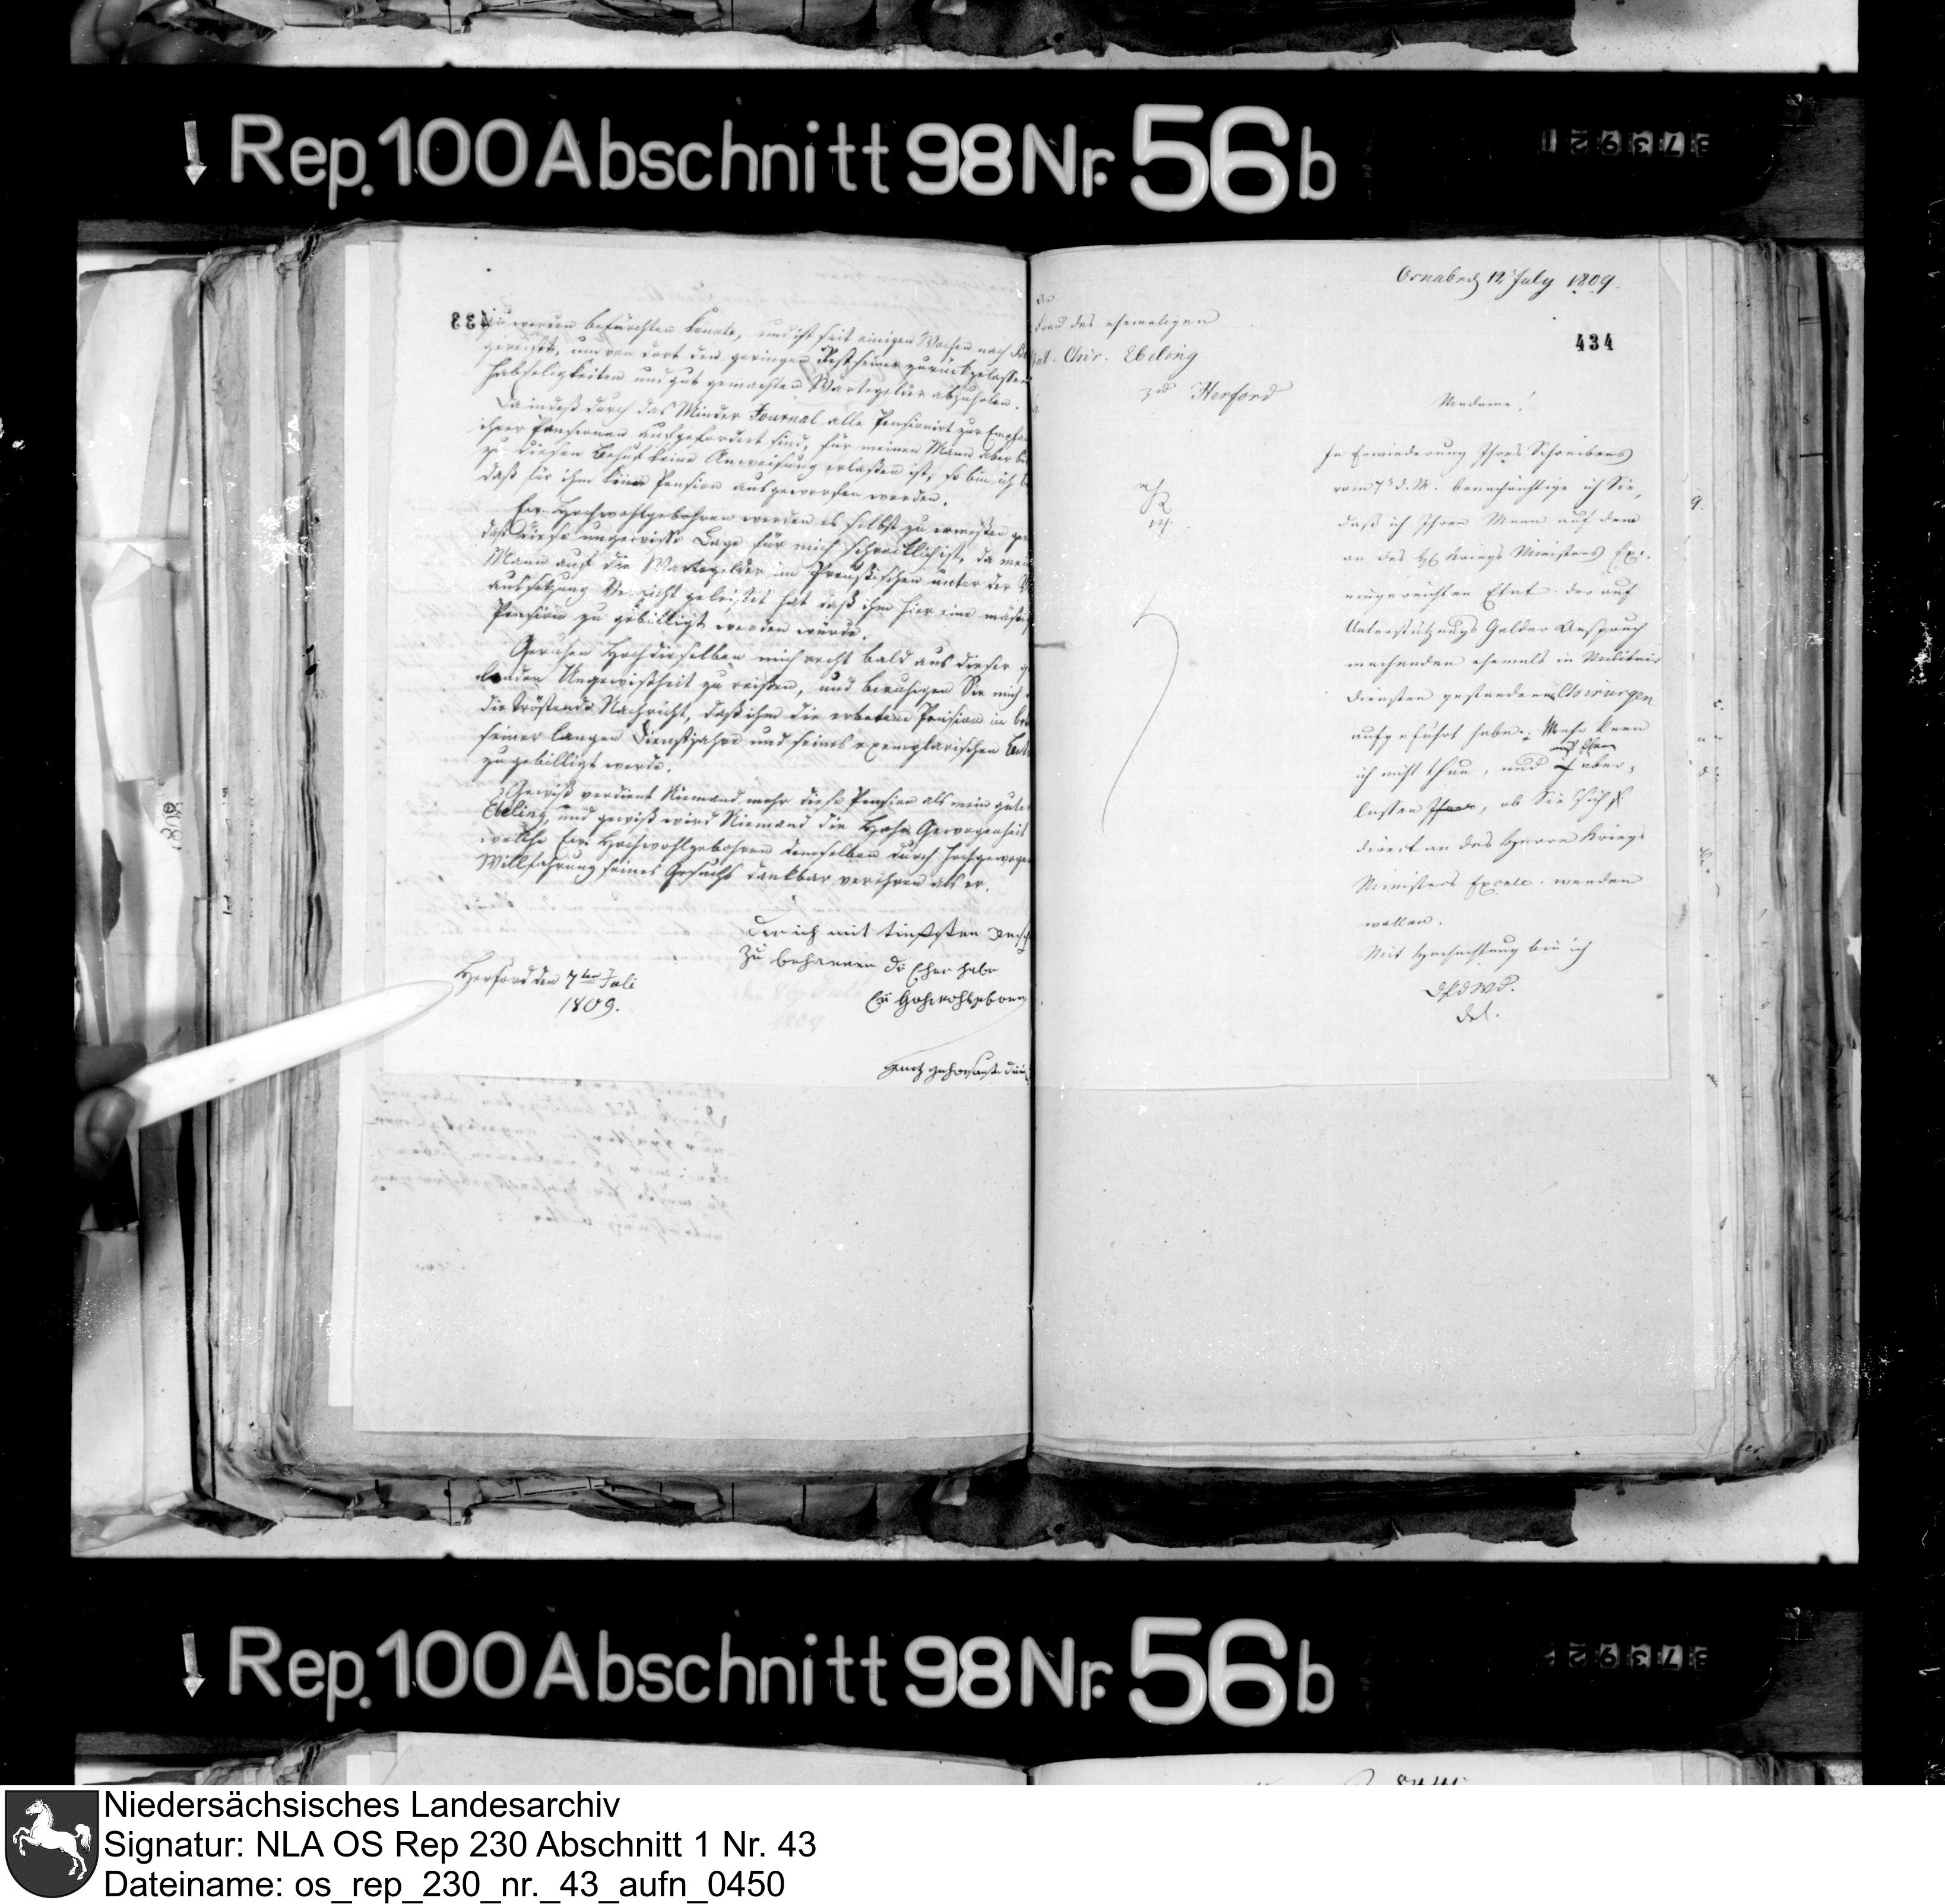 Rep. 100 Abschnitt 98 Nr. 56 b
zu werden befürchten konnte, und ist seit einigen Wochen nach
gereiset, um von dort den geringen Rest seiner zurückgelassen
Habseligkeiten und gut gemachten Wartegelder abzuholen.
Da indeß durch das Minder Journal alle Pensionirt zur Empfa
ihrer Pensionen aufgefordert sind, für meinen Mann aber
zu diesem Behuf keine Anweisung erlaßen ist, so bin ich
daß für ihm keine Pension ausgeworfen worden.
Ew. Hochwohlgebohren werden es selbst zu ermeßen
daß diese ungewisse Lage für mich schrecklich ist, da mein
Mann auf die Wartegelder im Preußischen unter der
aussetzung Verzicht geleistet hat daß ihm hier eine mäßi
Pension zu gebilligt werden würde.
Geruhen Hochdieselben mich recht bald aus dieser
Ungewißheit zu reißen, und beruhigen Sie mich
die tröstende Nachricht, daß ihm die erbetene Pension in
seiner langen Dienstjahre und seines exemplarischen
zu gebilligt werde.
Gewiß verdient Niemand mehr diese Pension als mein guter
Ebeling, und gewiß wird Niemand die Hohe Gewogenheit
welche Ew. Hochwohlgebohren demselben durch
Willfahrung seines Gesuchs dankbar verehren als er.
Der ich mit tiefsten
zu beharren die Ehre habe
Herford den 7ten Juli
1809.
Eu Hochwohlgeboren
gantz gehorsamste
433
Osnabrück 12 July 1809.
434
Frau des ehemaligen
Chir. Ebeling
zu Herford
Madame!
In Erwiederung Ihres Schreibens
vom 7t d. M. benachrichtige ich Sie,
daß ich Ihren Mann auf dem
an des H Kriegs Ministers Exc.
eingereichten Etat der auf
Unterstützungs Gelder Anspruch
machenden ehemals in Militair
Diensten gestandenen Chirurgen
aufgeführt habe. Mehr kann
ich nicht thun, und über-
lassen, ob Sie Sich
direct an des Herrn Kriegs
Ministers Excell. wenden
wollen.
Mit Hochachtung bin ich
Rep. 100 Abschnitt 98 Nr. 56 b
Niedersächsisches Landesarchiv
Signatur: NLA OS Rep 230 Abschnitt 1 Nr. 43
Dateiname: os_rep_230_nr._43_aufn_0450